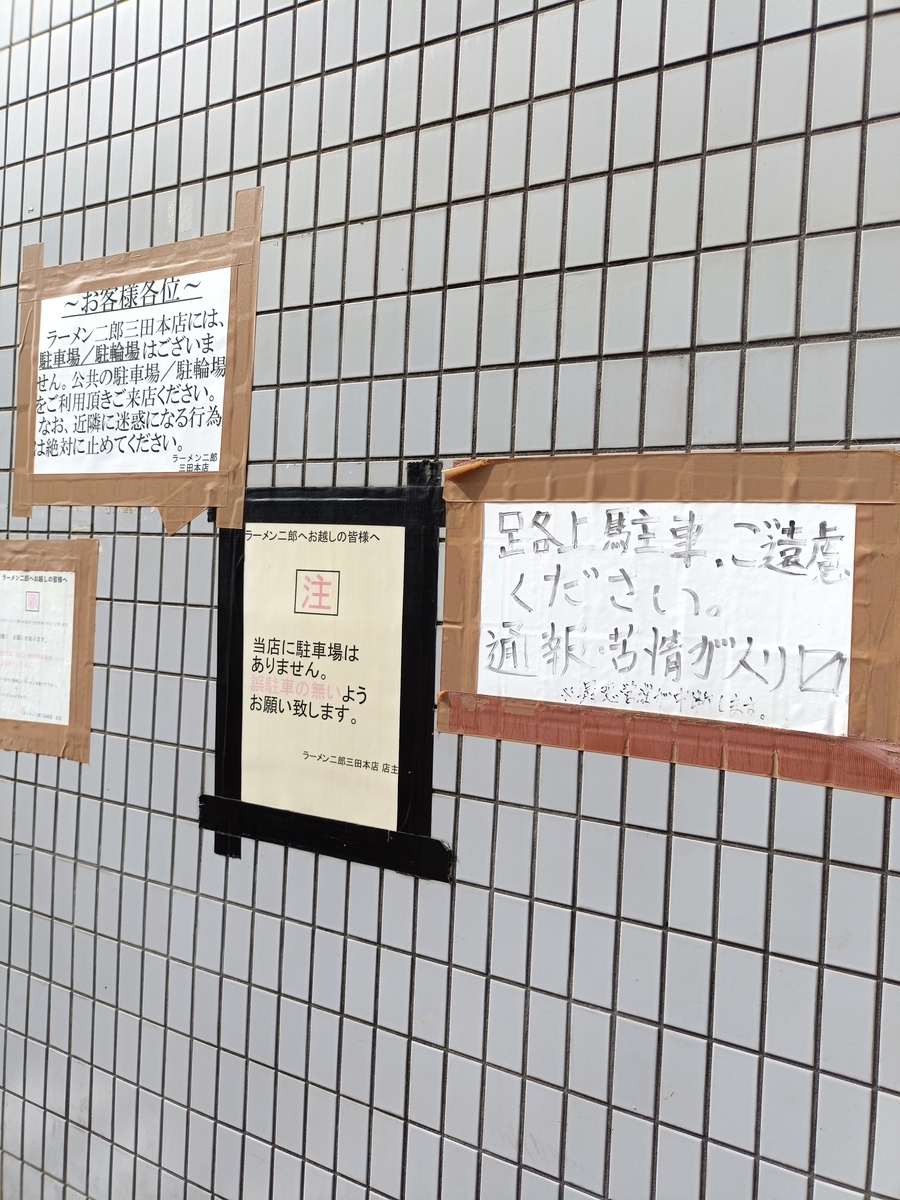 ～お客様各位～
ラーメン二郎三田本店には、
駐車場／駐輪場はございま
せん。公共の駐車場／駐輪場
をご利用頂きご来店ください。
なお、近隣に迷惑になる行為
は絶対に止めてください。
ラーメン二郎
三田本店
ラーメン二郎へお越しの皆様へ
ラーメン二郎へお越しの皆様へ
注
当店に駐車場は
ありません。
誤駐車の無いよう
お願い致します。
ラーメン二郎三田本店 店主
上駐車、ご遠慮
ください。
通報・苦情が入リ
します。